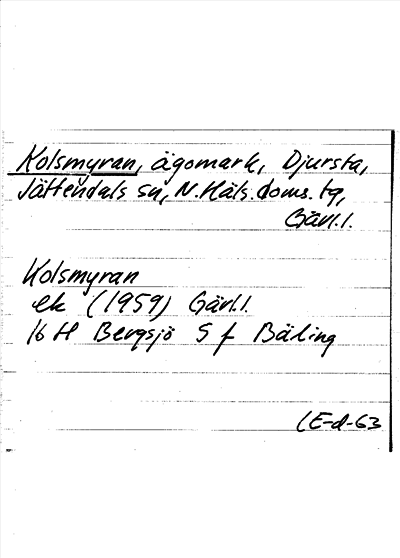 Kolsmyran, ägomark, Djursta,
Jättendals sn, N. Häls. doms. tg,
Gävl.l.
Kolsmyran
ek (1959) Gävl.l.
16 H Bergsjö 5 f Bäling
LE-d-63